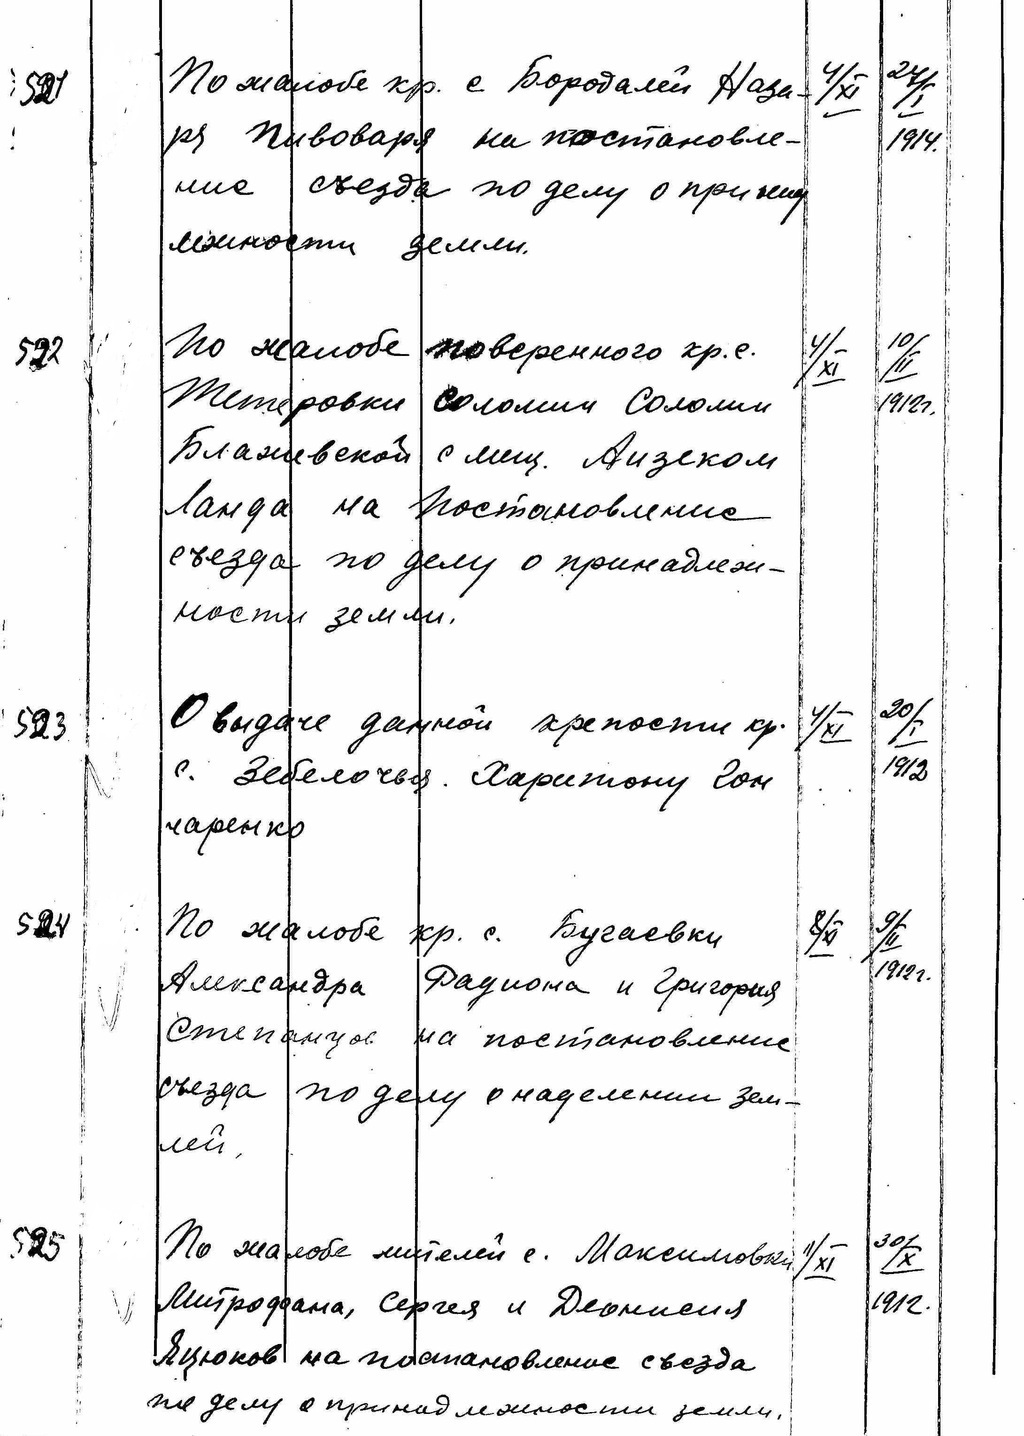 521 По жалобе кр. с Бородалей Наза- 4/XI 27/I
ря Пивоваря на постановле- 1914.
ние съезда по делу о принад
лежности земли.
522 По жалобе поверенного кр. с. 4/XI 10/II
Тетеровки Соломии Соломии 1912г.
Блажиевской с мещ. Аизеком
Ланда на постановление
съезда по делу о принадлеж-
ности земли.
523 О выдаче данной крепости кр. 4/XI 20/I
с. Зебелочья. Харитону Гон 1912
чаренко
524 По жалобе кр. с. Бугаевки 8/XI 9/II
Александра Радиона и Григория 1912г.
Степанцов на постановление
съезда по делу о наделении зем-
лей,
525 По жалобе жителей с. Максимовки 11/XI 30/X
Митрофана, Сергея и Деонисия 1912.
Яцюков на постановление съезда
по делу о принадлежности земли.